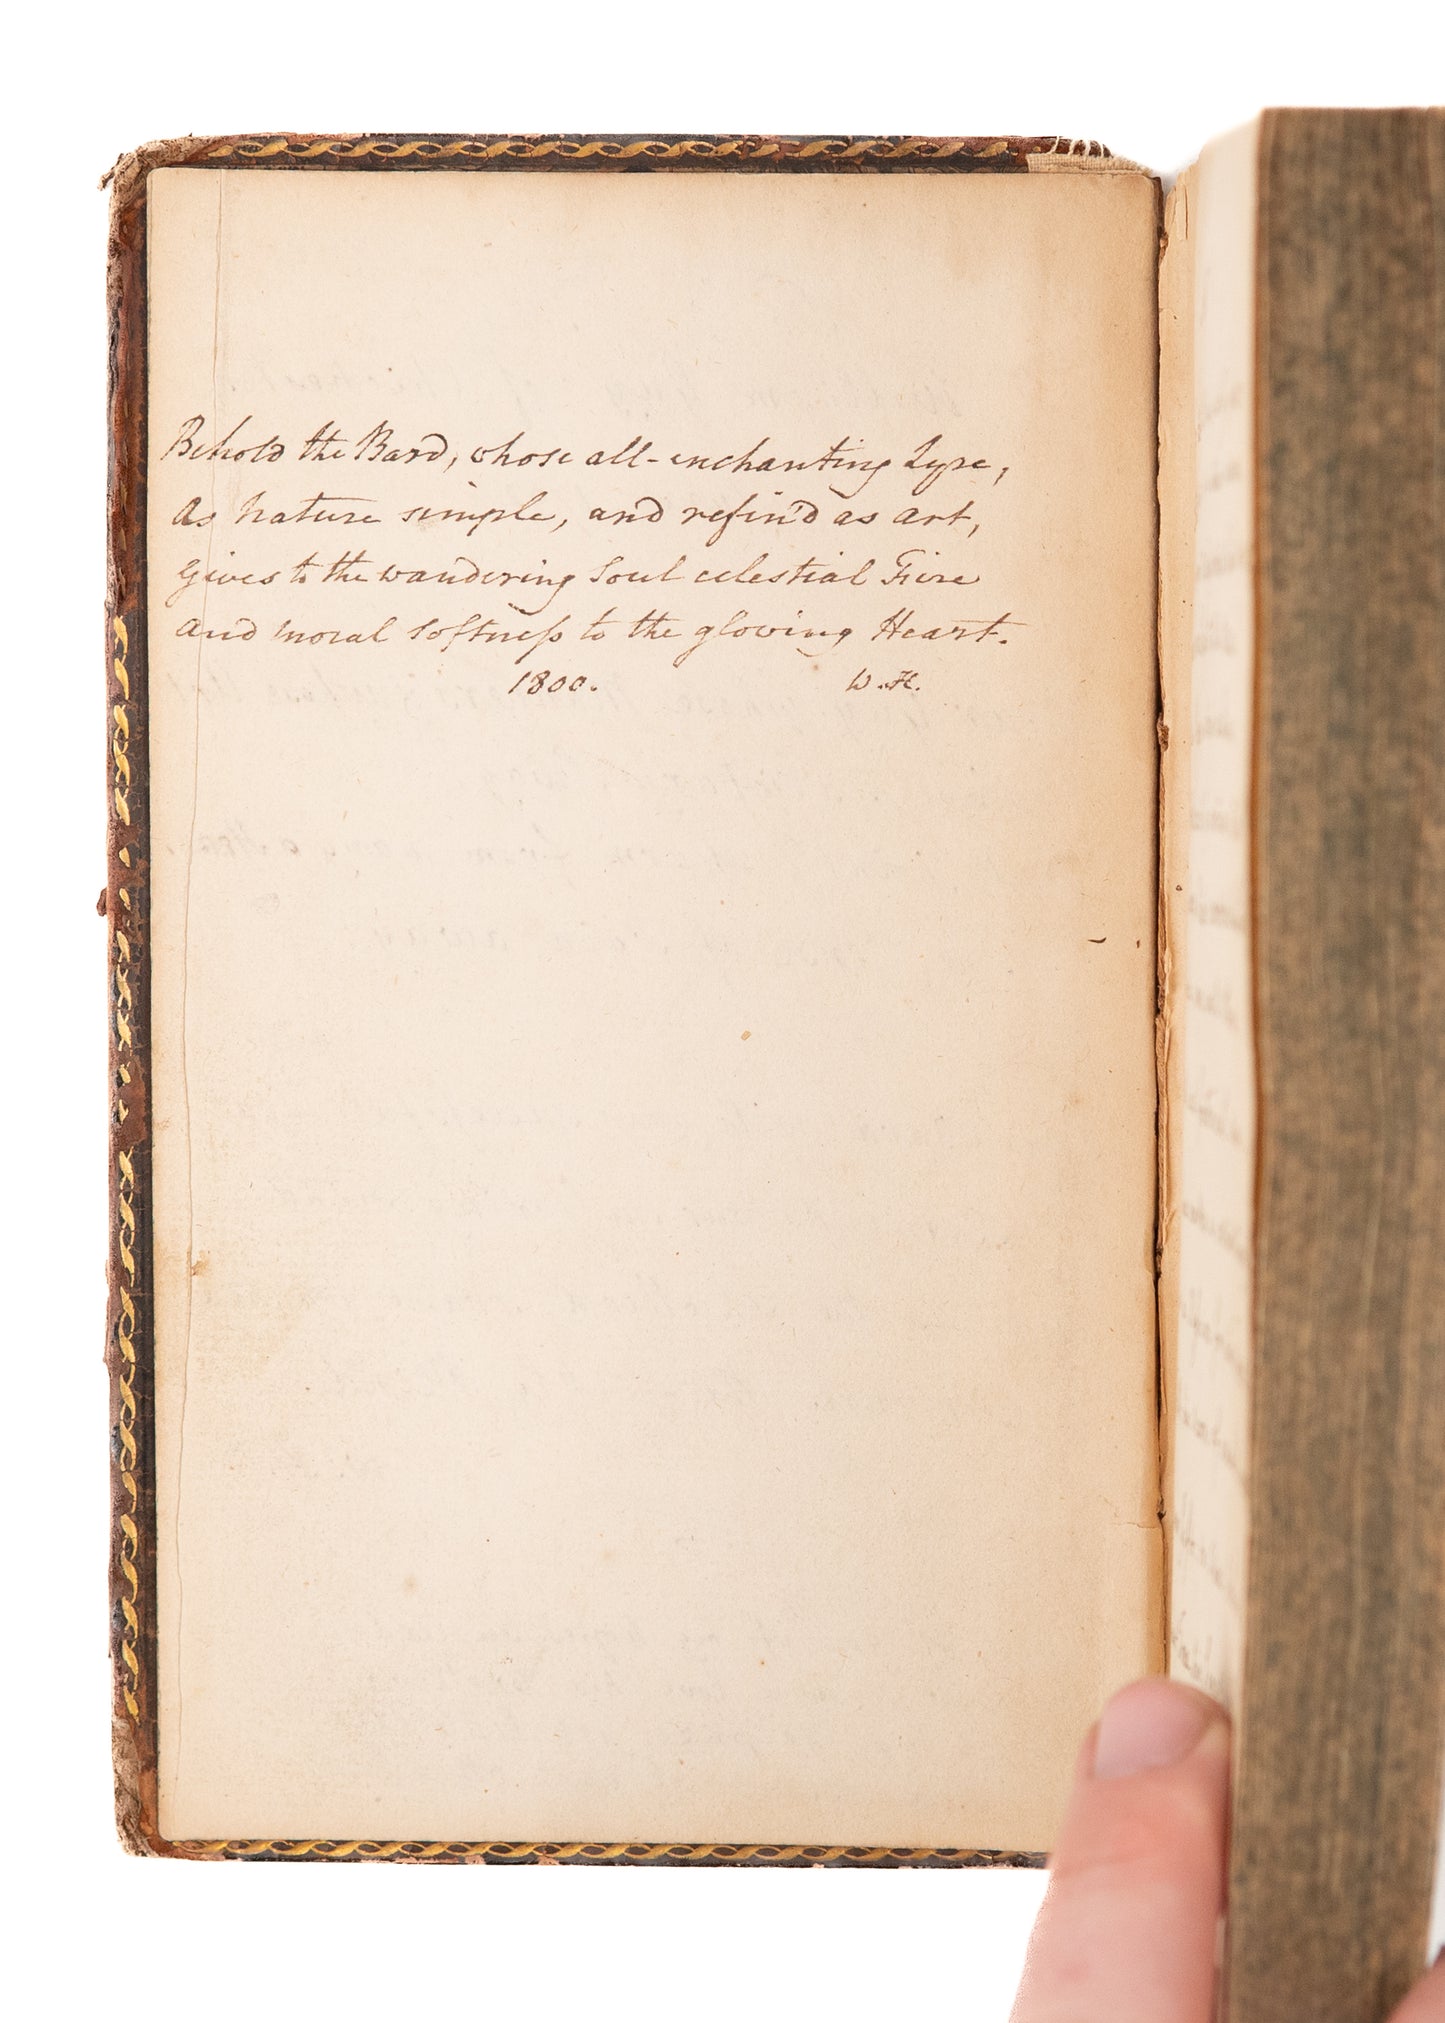 Behold the Bard, whose all-enchanting Lyre,
As Nature simple, and refin'd as Art,
Gives to the wandering Soul celestial Fire
And moral Softness to the glowing Heart.
1800. W.H.